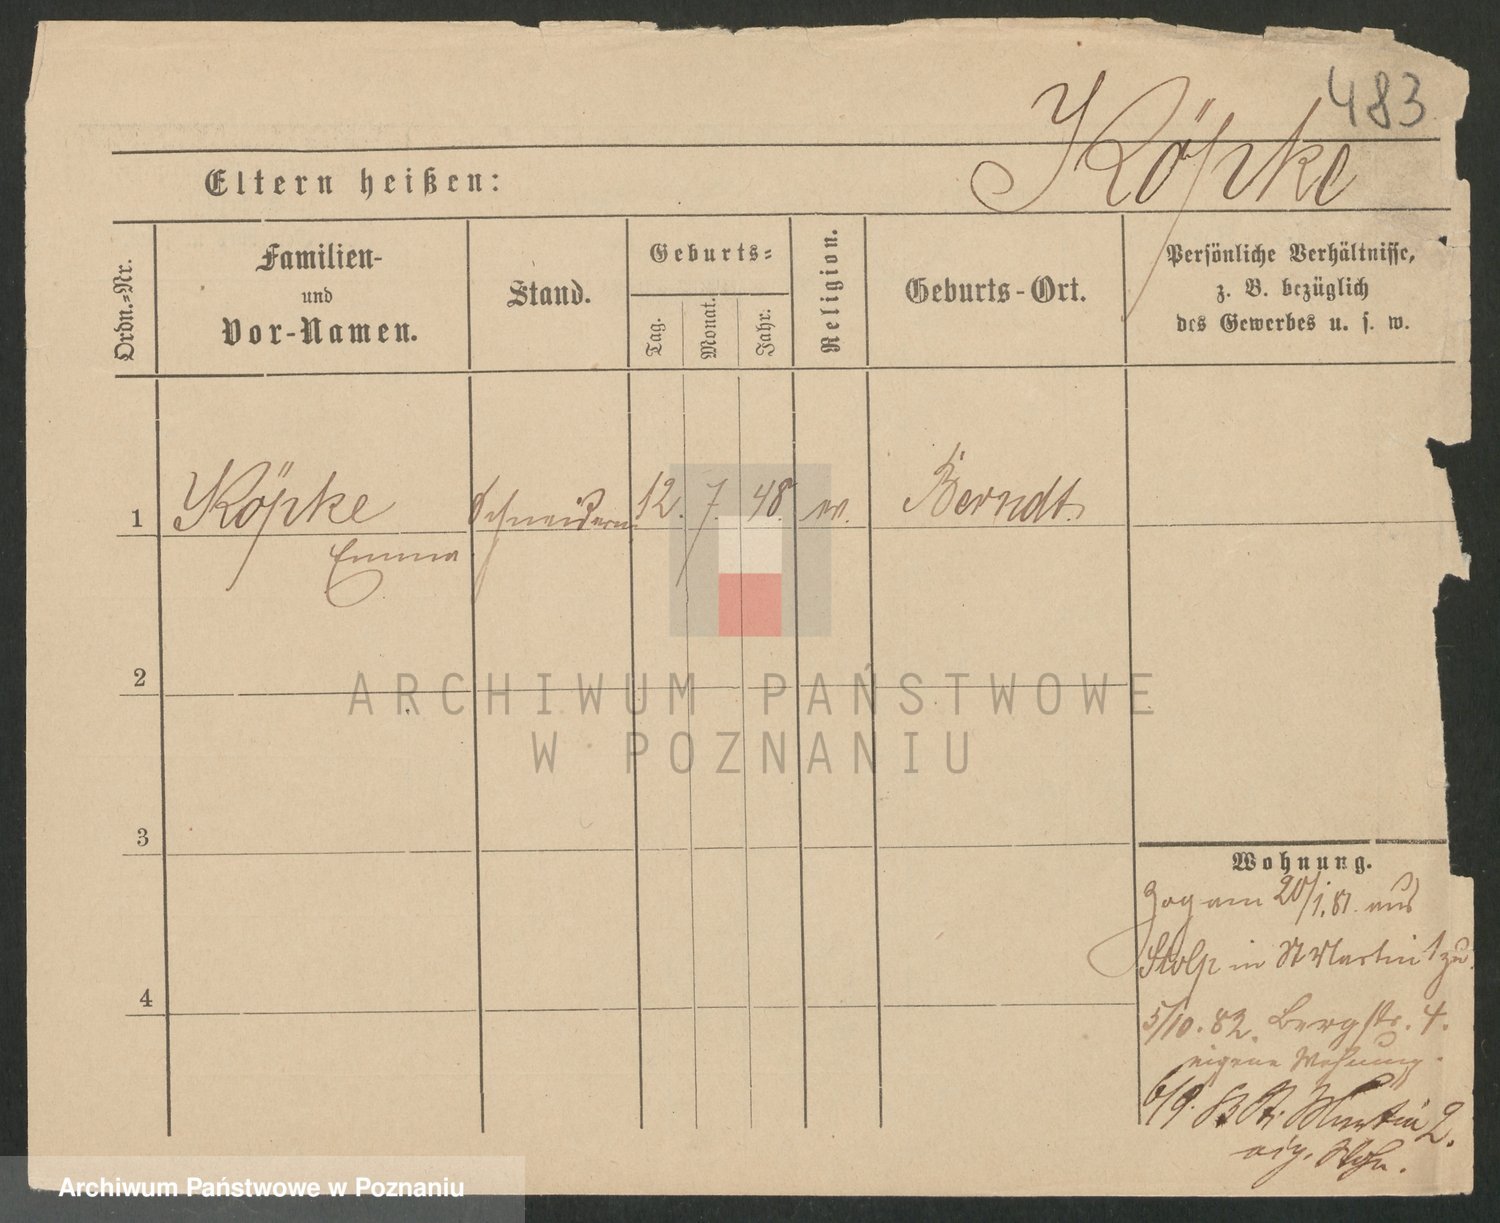 483
Köpke
Eltern heißen:
Ordn.-Nr.
Familien-
und
Vor-Namen.
Stand.
Geburts-
Tag.
Monat.
Jahr.
Religion.
Geburts-Ort.
Persönliche Verhältnisse,
z. B. bezüglich
des Gewerbes u. s. w.
1
Köpke
Emma
Schneiderin
12.
7
48
ev.
Berndt
2
ARCHIWUM PAŃSTWOWE
W POZNANIU
3
Wohnung.
Zog am 20/1.81. aus
Stolp in St Martin 1 zu.
4
5/10.82. Bergstr. 4.
eigene Wohnung.
6/9. St. Martin 2.
eig. Wohn.
Archiwum Państwowe w Poznaniu